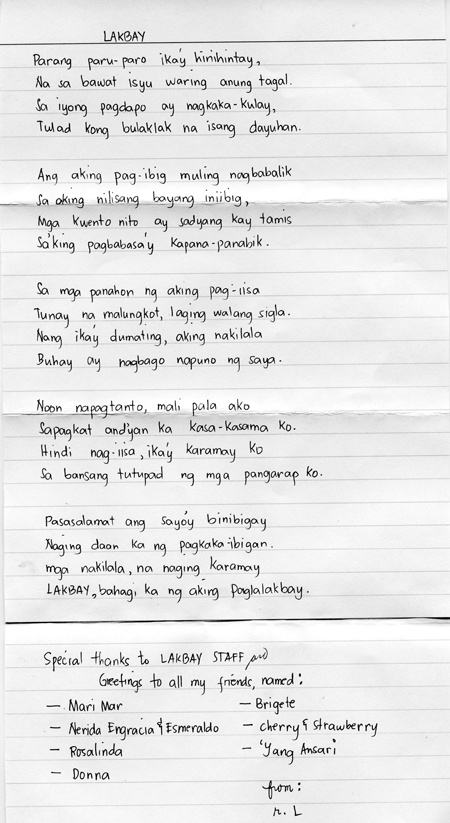 LAKBAY
Parang paru-paro ika'y hinihintay,
Na sa bawat isyu waring anung tagal.
Sa iyong pagdapo ay nagkaka-kulay,
Tulad kong bulaklak na isang dayuhan.
Ang aking pag-ibig muling nagbabalik
Sa aking nilisang bayang iniibig,
Mga kwento nito ay sadyang kay tamis
Sa'king pagbabasa'y kapana-panabik.
Sa mga panahon ng aking pag-iisa
Tunay na malungkot, laging walang sigla.
Nang ika'y dumating, aking nakilala
Buhay ay nagbago napuno ng saya.
Noon napagtanto, mali pala ako
Sapagkat and'yan ka kasa-kasama ko.
Hindi nag-iisa, ika'y karamay ko
Sa bansang tutupad ng mga pangarap ko.
Pasasalamat ang sayo'y binibigay
Naging daan ka ng pagkaka-ibigan.
mga nakilala, na naging karamay
LAKBAY, bahagi ka ng aking paglalakbay.
Special thanks to LAKBAY STAFF and
Greetings to all my friends, named:
— Mari Mar
— Nerida Engracia & Esmeraldo
— Rosalinda
— Donna
— Brigete
— cherry & strawberry
— 'Yang Ansari
from:
r. L